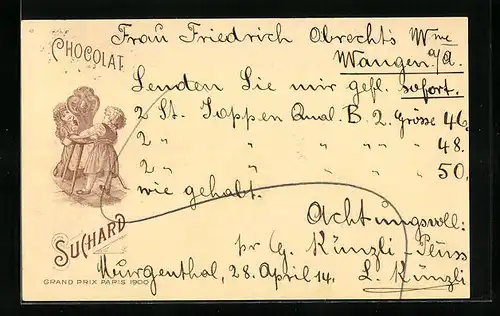 CHOCOLAT
Frau Friedrich Obrechts Wwe
Wangen a/A.
Senden Sie mir gefl. sofort.
2 St. Joppen Qual. B. 2. Grösse 46.
2 " " " " " 48.
2 " " " " " 50.
wie gehabt.
Achtungsvoll:
SUCHARD
pr G. Künzli-Peuss
Murgenthal, 28. April 14. L. Künzli
GRAND PRIX PARIS 1900